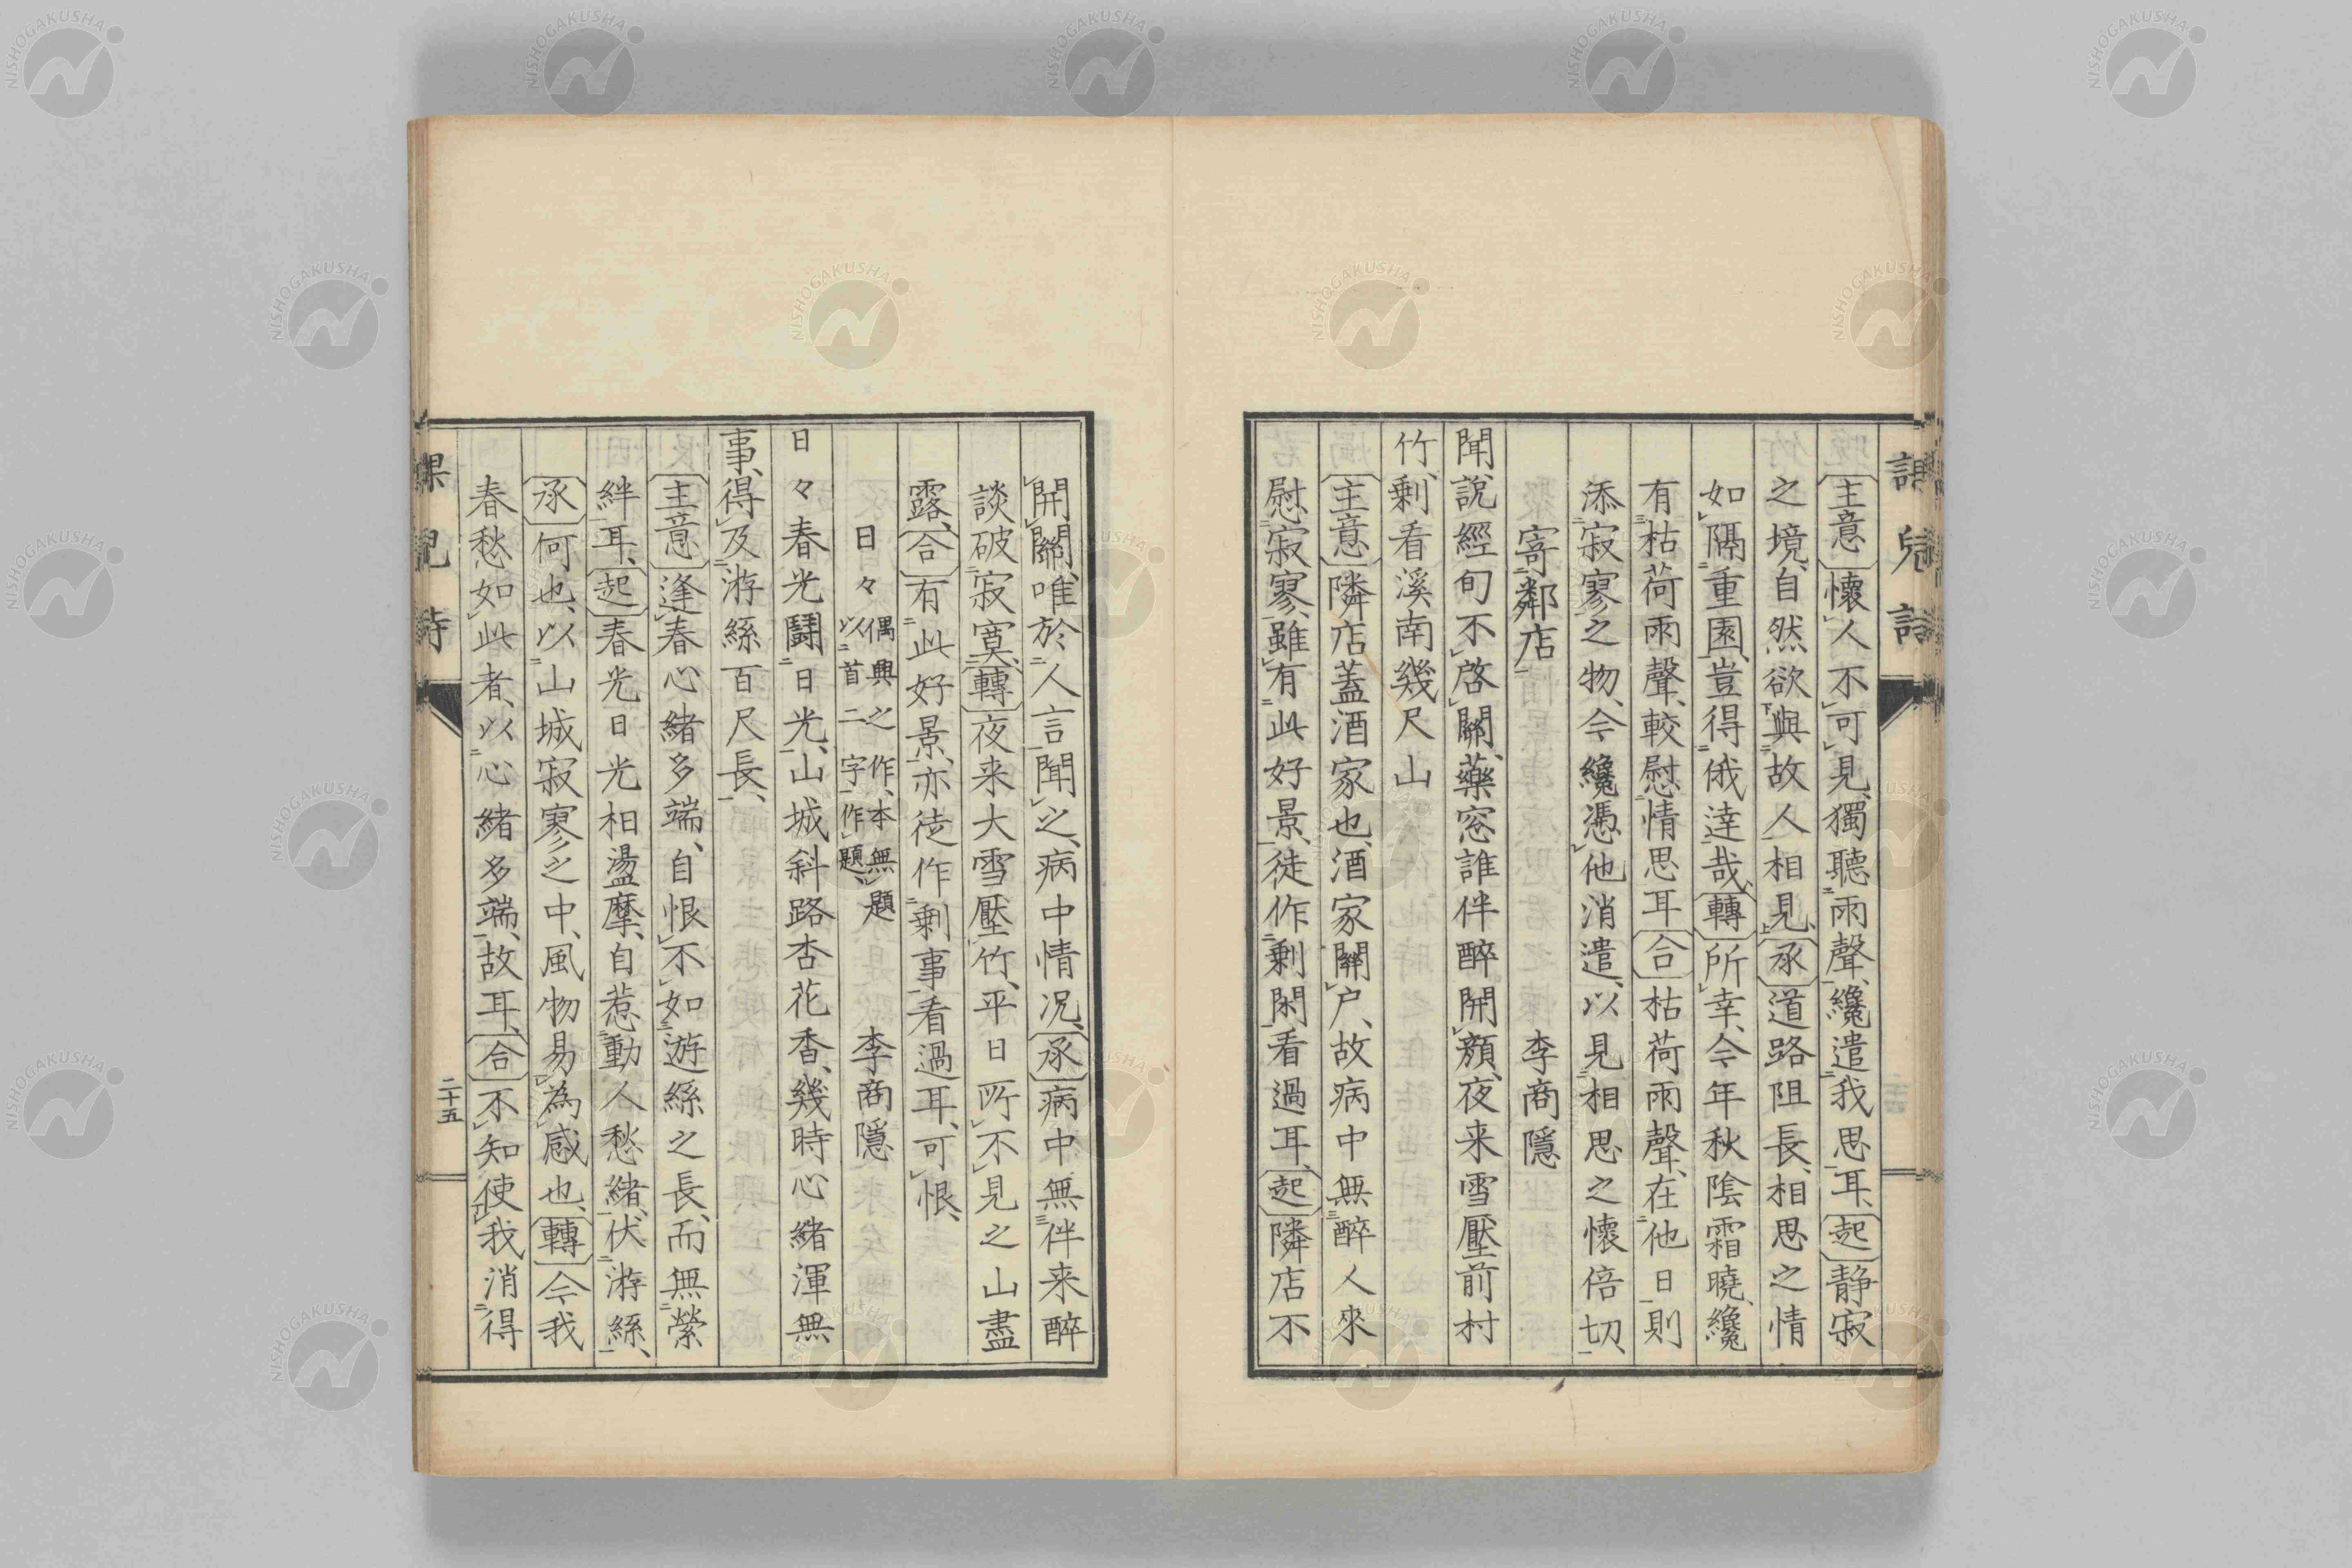 主意懷人不可見、獨聽雨聲、纔遣我思耳、起静寂
之境、自然欲與故人相見、承道路阻長、相思之情
如隔重園、豈得俄達哉、轉所幸、今年秋陰霜曉、纔
有枯荷雨聲、較慰情思耳合枯荷雨聲、在他日則
添寂寥之物、今纔憑他消遣、以見相思之懷倍切、
寄鄰店 李商隱
聞說經旬不啓關、藥窓誰伴醉開顔、夜来雪壓前村
竹、剰看溪南幾尺山
主意隣店蓋酒家也、酒家關戸、故病中無醉人來
慰寂寥、雖有此好景、徒作剰閑看過耳、起隣店不
開關、唯於人言聞之、病中情况、承病中無伴来醉
談破寂寞、轉夜来大雪壓竹、平日所不見之山盡
露、合有此好景、亦徒作剰事看過耳、可恨、
日々 偶興之作、本無題 以首二字作題、 李商隱
日々春光鬪日光、山城斜路杏花香、幾時心緒渾無
事、得及游絲百尺長、
主意逢春心緒多端、自恨不如遊絲之長、而無縈
絆耳、起春光日光相盪摩、自惹動人愁緒、伏游絲、
承何也、以山城寂寥之中、風物易為感也、轉今我
春愁如此者、以心緒多端、故耳、合不知使我消得
二十五